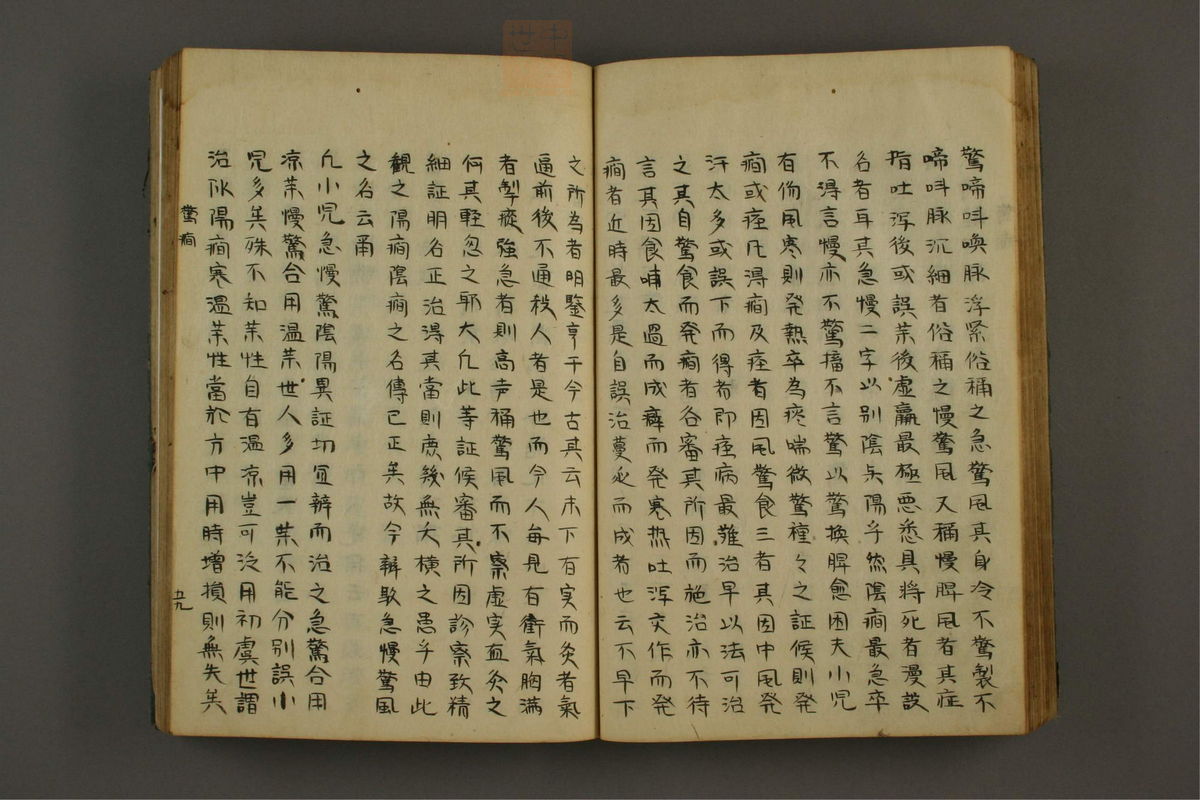 驚啼呌喚脉浮紧俗稱之急驚風其身冷不驚製不
啼呌脉沉細者俗稱之慢驚風又稱慢脾風者其症
指吐瀉後或誤茱後虚羸最極悪悉具將死者漫設
名者耳其急慢二字以别陰与陽乎然陰癎最急卒
不得言慢亦不驚搐不言驚以驚換脾愈困夫小児
有傷風寒則発熱卒為痰喘微驚種々之証候則発
癎或痓凢得癎及痓者因風驚食三者其因中風発
汗太多或誤下而得者即痓病最難治早以法可治
之其自驚食而発癎者各審其所因而施治亦不待
言其因食哺太過而成癖而発寒热吐瀉交作而発
癎者近時最多是自誤治蔓延而成者也云不早下
之所為者明鑒亨于今古其云未下有实而灸者氣
逼前後不通殺人者是也而今人每見有衝氣胸满
者掣瘲強急者則高声稱驚風而不察虚実血灸之
何其軽忽之耶大凢此等証候審其所因診察致精
細証明名正治得其當則庶幾無夭横之愚乎由此
観之陽癎陰癎之名傳已正矣故今辨駁急慢驚風
之名云甬
凢小児急慢驚陰陽異証切宜辨而治之急驚合用
凉茱慢驚合用温茱世人多用一茱不能分别誤小
児多矣殊不知茱性自有温凉豈可泛用初虞世謂
治似陽癎寒温茱性當於方中用時增損則無失矣
驚癎
五九
中
世